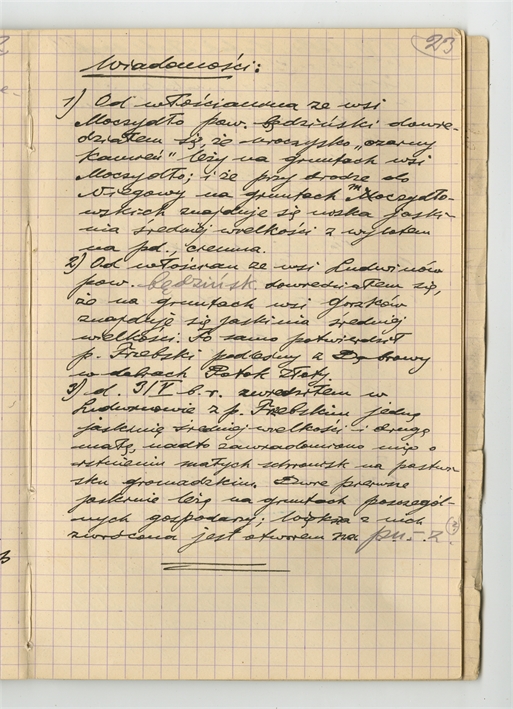 23
Wiadomości:
1) Od włościanina ze wsi
Moczydło pow. będziński dowie-
działem się, że uroczysko „czarny
kamień" leży na gruntach wsi
Moczydło; i że przy drodze do
Niegowy na gruntach Moczydło-
wskich znajduje się wąska jaski-
nia średniej wielkości z wylotem
na pd., ciemna.
2) Od włościan ze wsi Ludwinów
pow. będzińsk. dowiedziałem się,
że na gruntach wsi Gorzków
znajduje się jaskinia średniej
wielkości. To samo potwierdził
p. Trzebski podleśny z Dąbrowy
w dobrach Potok Złoty.
3) d. 3/V b. r. zwiedziłem w
Ludwinowie z p. Trzebskim jedną
jaskinię średniej wielkości i drugą
małą, nadto zawiadomiono mię o
istnieniu małych schronisk na pastwi-
sku gromadzkim. Dwie pierwsze
jaskinie leżą na gruntach poszczegól-
nych gospodarzy; większa z nich
zwrócona jest otworem na pn.-z.